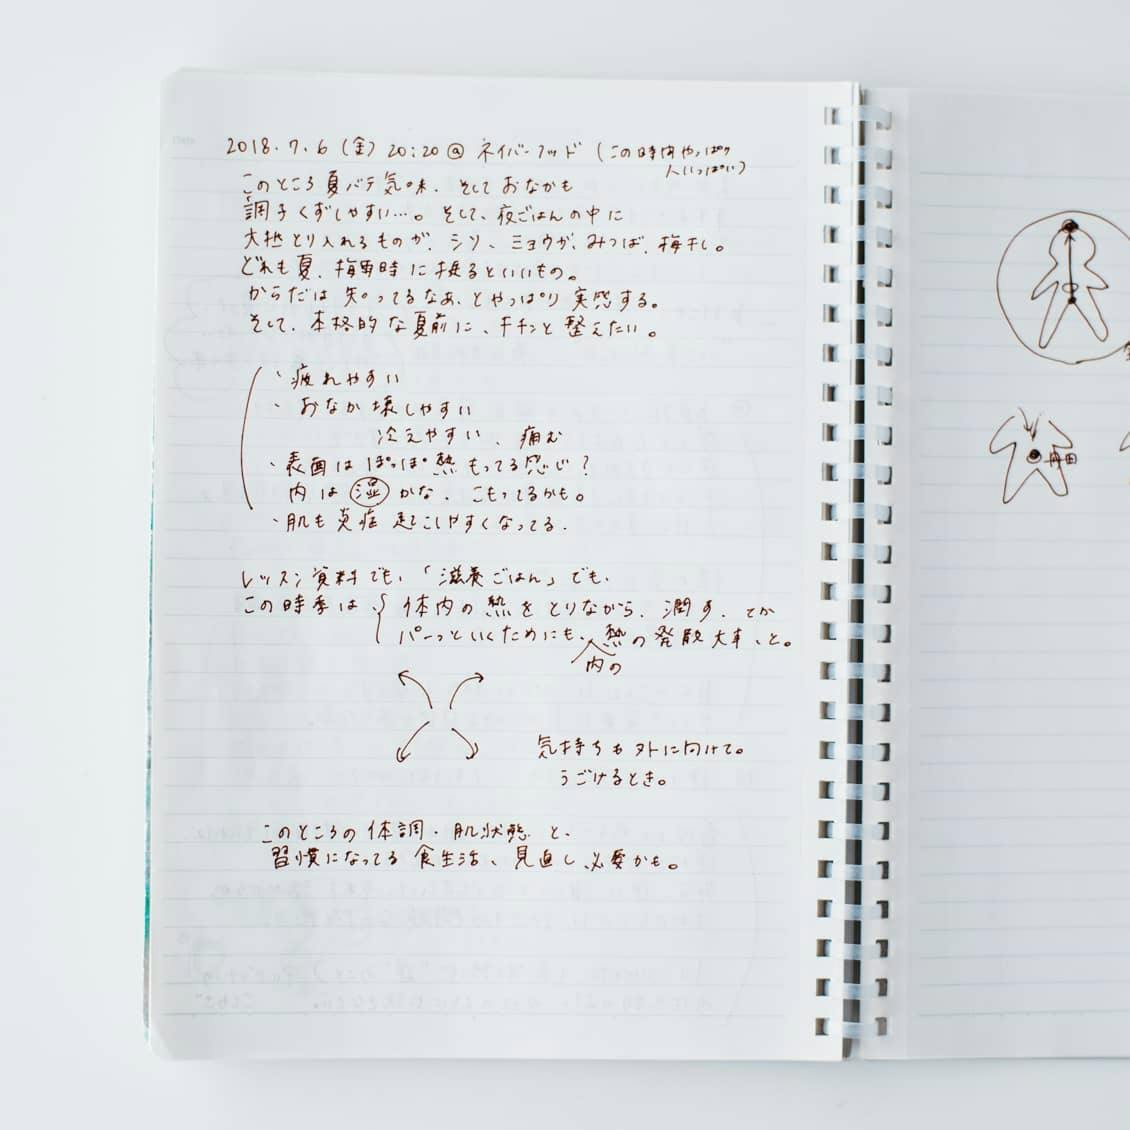 2018.7.6(金) 20:20@ ネイバーフッド (この時間やっぱり
人いっぱい)
このところ夏バテ気味、そしておなかも
調子くずしやすい…。そして、夜ごはんの中に
大抵とり入れるものが、シソ、ミョウガ、みつば、梅干し。
どれも夏、梅雨時に採るといいもの。
からだは知ってるなあ、とやっぱり実感する。
そして、本格的な夏前に、キチンと整えたい。
・疲れやすい
・おなか壊しやすい
冷えやすい、痛む
・表面はぽっぽ熱もってる感じ?
内は湿かな、こもってるかも。
・肌も炎症起こしやすくなってる。
レッスン資料でも、「滋養ごはん」でも、
この時季は、体内の熱をとりながら、潤す、とか
パーっといくためにも、内の熱の発散大事、と。
気持ちも外に向けて。
うごけるとき。
このところの体調・肌状態と、
習慣になってる食生活、見直し必要かも。
丹田